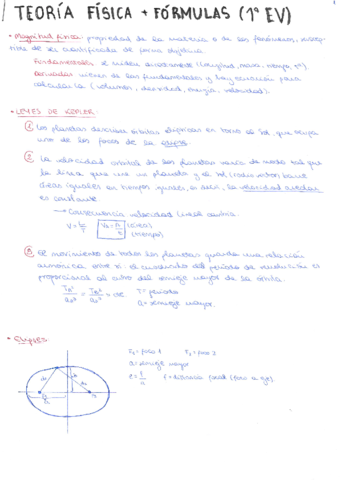 TEORÍA FÍSICA + FÓRMULAS (1ª EV)
• Magnitud física: propiedad de la materia o de los fenómenos, susceptible de ser cuantificada de forma objetiva.
Fundamentales: se miden directamente (longitud, masa, tiempo, tª)
Derivadas: vienen de las fundamentales y hay ecuación para
calcularla (volumen, densidad, energía, velocidad).
• LEYES DE KEPLER:
① Los planetas describen órbitas elípticas en torno al Sol, que ocupa
uno de los focos de la elipse.
② La velocidad orbital de los planetas varía de modo tal que
la línea que une un planeta y el Sol (radio vector) barre
áreas iguales en tiempos iguales, es decir, la velocidad areolar
es constante.
→ Consecuencia velocidad lineal
(área)
(tiempo)
③ El movimiento de todos los planetas guarda una relación
armónica entre sí: el cuadrado del período de revolución es
proporcional al cubo del semieje mayor de la órbita.
T = período
a = semieje mayor
• Elipses:
= foco 1 = foco 2
a = semieje mayor